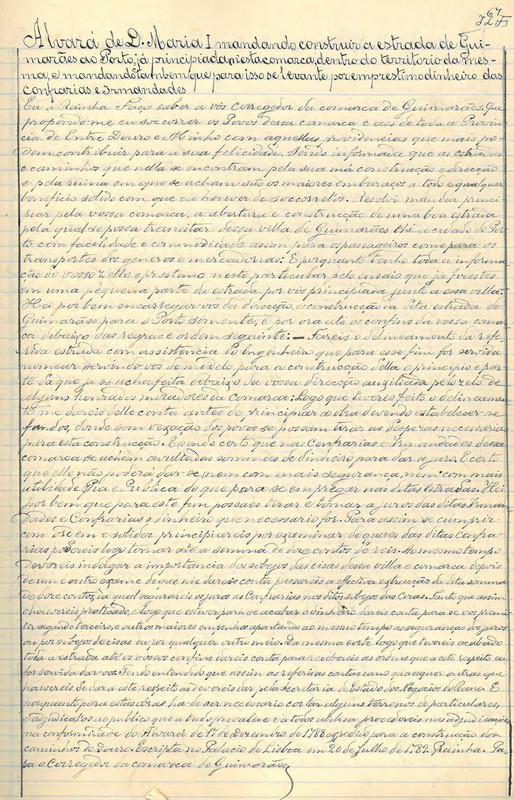 67
Alvará de D. Maria I mandando construir a estrada de Gui-
marães ao Porto, já principiada n'esta comarca, dentro do territorio da mes-
ma, e mandando tambem que para isso se levante por emprestimo dinheiro das
confrarias e Irmandades
Eu a Rainha Faço saber a vós corregedor da comarca de Guimarães: Que
propondo-me eu soccorrer os Povos dessa comarca e aos de toda a Provin-
cia de Entre Douro e Minho com aquellas providencias que mais po-
dem contribuir para a sua felicidade. Sendo informada que as estradas
e caminhos que nella se encontram, pela sua má construcção e direcção
e pela ruina em que se acham são os maiores embaraços a todo e qualquer
beneficio solido com que eu haja de soccorrel-os. Resolvi mandar princi-
piar pela vossa comarca, a abertura e construcção de uma boa estrada
pela qual se possa transitar dessa villa de Guimarães thé a cidade do Por-
to com facilidade e commodidade assim para os passageiros como para os
transportes dos generos e mercadorias: E porquanto tenho toda a informa-
ção do vosso zello e prestimo neste particular pelo ensaio que já fizestes
em uma pequena parte da estrada por vós principiada junto a essa villa:
Hei por bem encarregar-vos da direcção, e construcção da dita estrada de
Guimarães para o Porto somente, e por ora até os confins da vossa comar-
ca debaixo das regras e ordem seguinte: — Fareis o delineamento da refe-
rida estrada com assistencia do Engenheiro que para esse fim for servida
nomear servindo-vos de modelo para a construcção della o principio e par-
te da que já se acha feita debaixo da vossa direcção auxiliada pelo zelo de
alguns honrados moradores da comarca: Logo que tiveres feito o delineamen-
to me dareis delle conta antes de principiar a obra devendo estabelecer-se
fundos, donde sem vexação dos povos se possam tirar as despezas necessarias
para esta construcção. E sendo certo que nas Confrarias e Irmandades dessa
comarca se achem avultadas sommas de dinheiro para dar a juro. E certo
que elle não poderá dar-se nem com mais segurança, nem com mais
utilidade Pia e Publica do que para se empregar nas ditas estradas. Hei
por bem que para este fim possaes tirar e tomar a juros das ditas Irman-
dades e Confrarias o dinheiro que necessario for. Para assim se cumprir
com ordem e solidez principiareis por examinar de quaes das ditas confra-
rias podereis logo tomar até a somma de doze contos de reis. Ao mesmo tempo
devereis indagar a importancia dos sobejos das cisas dessa villa e comarca depois
de um e outro exame de que me dareis conta passareis a effectiva extracção da dita somma
de doze contos, da qual segurareis os juros ás Confrarias nos ditos sobejos das Cizas. Tanto que assim
o houvereis praticado, e logo que estiver para se acabar o dinheiro dareis conta para se vos premit-
tir segundo, terceiro, e outros maiores empenhos apontando ao mesmo tempo as seguranças dos juros
ou por sobejos de cisas ou por qualquer outro meio. Da mesma sorte logo que tiverdes acabado
toda a estrada até os vossos confins dareis conta para receberdes as ordens que a este respeito eu
for servida dar-vos. Tendo entendido que assim as referidas contas como quaesquer outras que
houvereis de dar a este respeito as devereis dar pela secretaria de Estado dos Negocios do Reino. E
porquanto para estas obras ha de ser necessario cortar alguns terrenos de particulares,
e adjudical-os ao publico que a tudo prevalece e a todos utilisa procedereis nas adjudicações
na conformidade do Alvará de 17 de Dezembro de 1788 expedido para a construcção dos
caminhos do Douro. Escripta no Palacio de Lisboa em 20 de Julho de 1789. Rainha. Pa-
ra o Corregedor da comarca de Guimarães